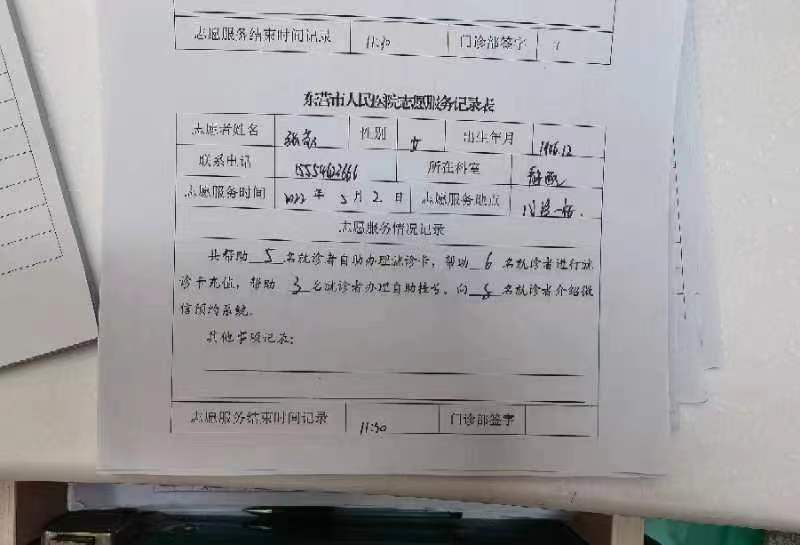 志愿服务结束时间记录 11:30 门诊部签字
东营市人民医院志愿服务记录表
志愿者姓名 张 性别 女 出生年月 1986.12
联系电话 所在科室
志愿服务时间 2022年5月2日 志愿服务地点 门诊一楼.
志愿服务情况记录
共帮助 5 名就诊者自助办理就诊卡,帮助 6 名就诊者进行就
诊卡充值,帮助 3 名就诊者办理自助挂号,向 8 名就诊者介绍微
信预约系统。
其他事项记录:
志愿服务结束时间记录 11:30 门诊部签字